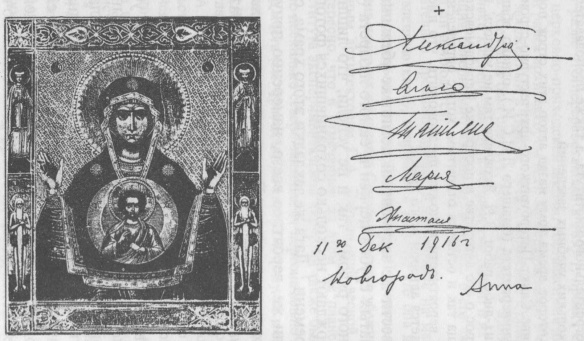 +
Александра.
Ольга
Татьяна
Мария
Анастасия
11го Дек 1916г
Новгородъ.
Anna